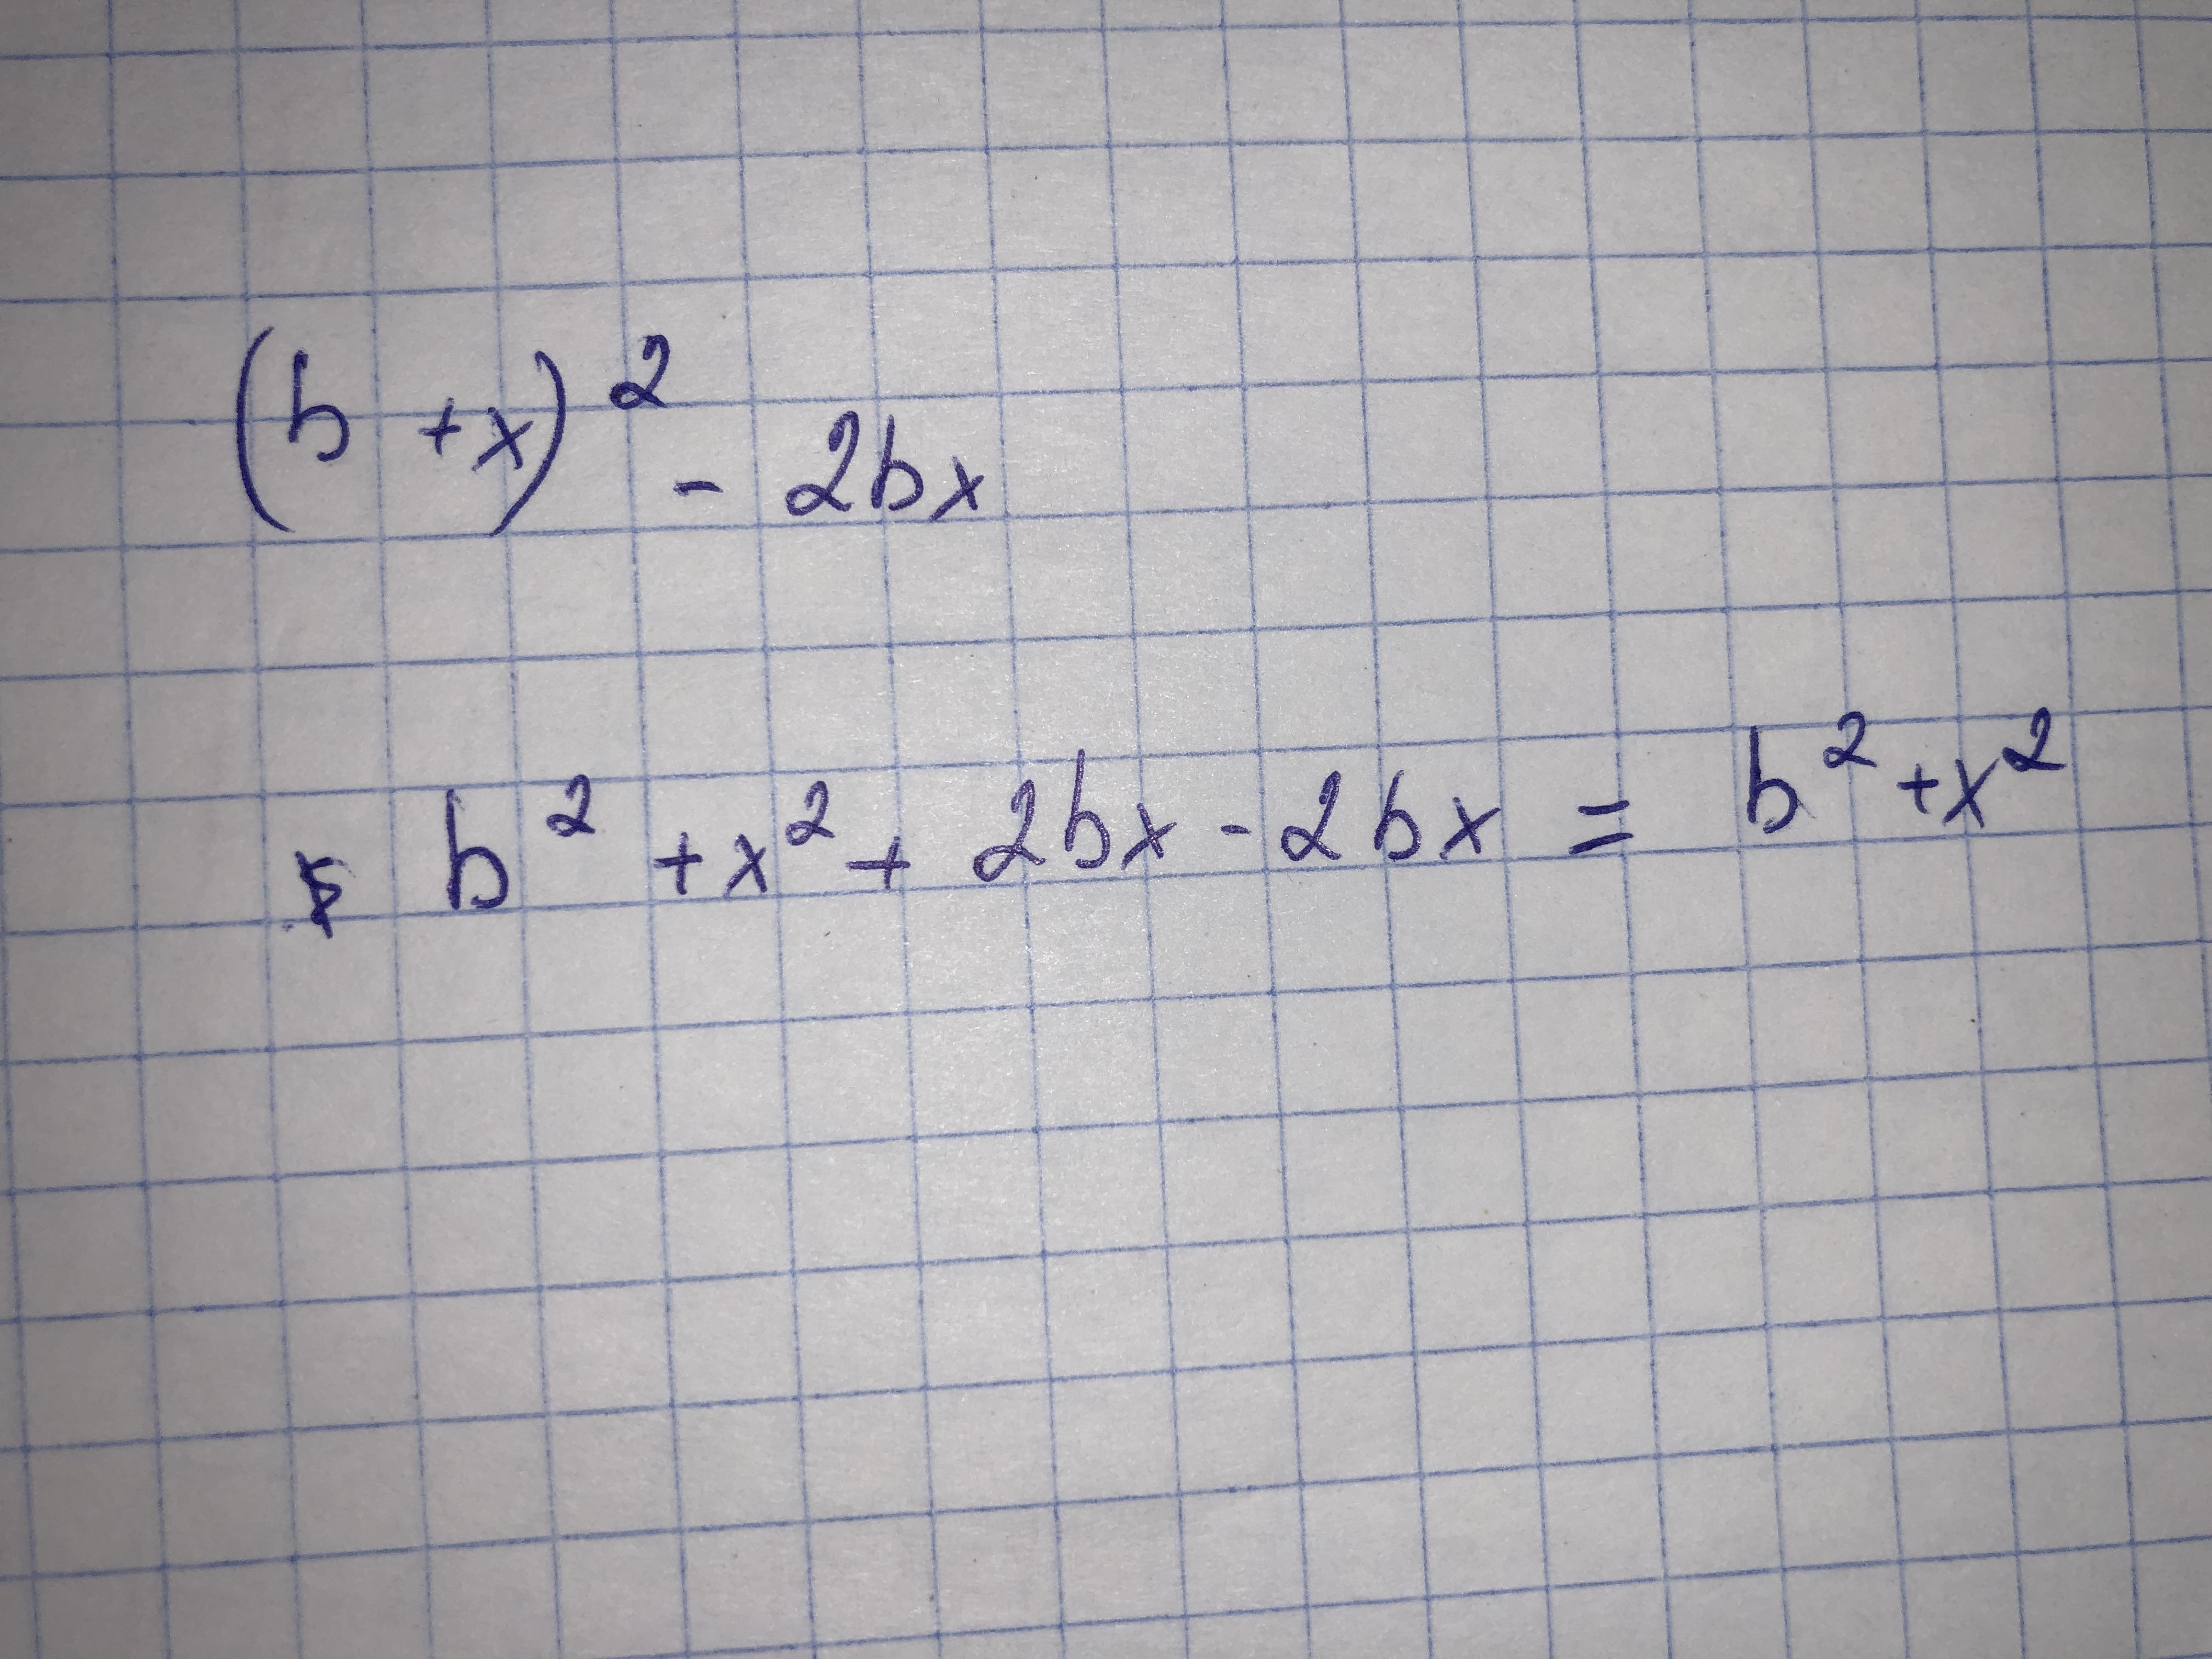 (b + x)² - 2bx
b² + x² + 2bx - 2bx = b² + x²